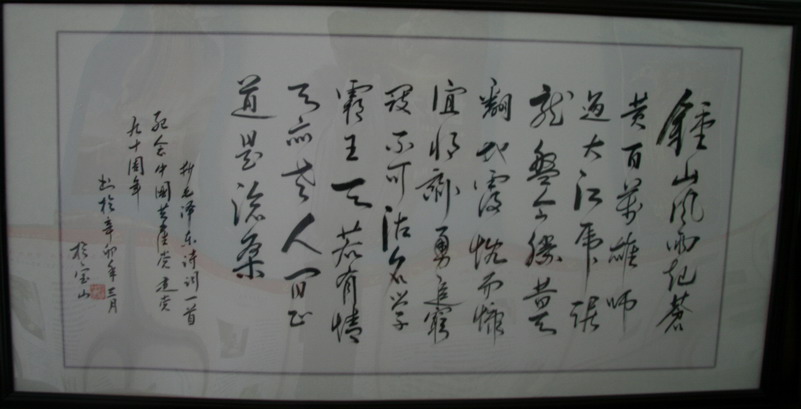 鍾山风雨起蒼
黄百萬雄师
过大江虎踞
龍盤今勝昔天
翻地覆慨而慷
宜将剩勇追窮
寇不可沽名学
霸王天若有情
天亦老人间正
道是滄桑
抄毛泽东诗词一首
纪念中国共產党建党
九十周年
书於辛卯年三月
於宝山